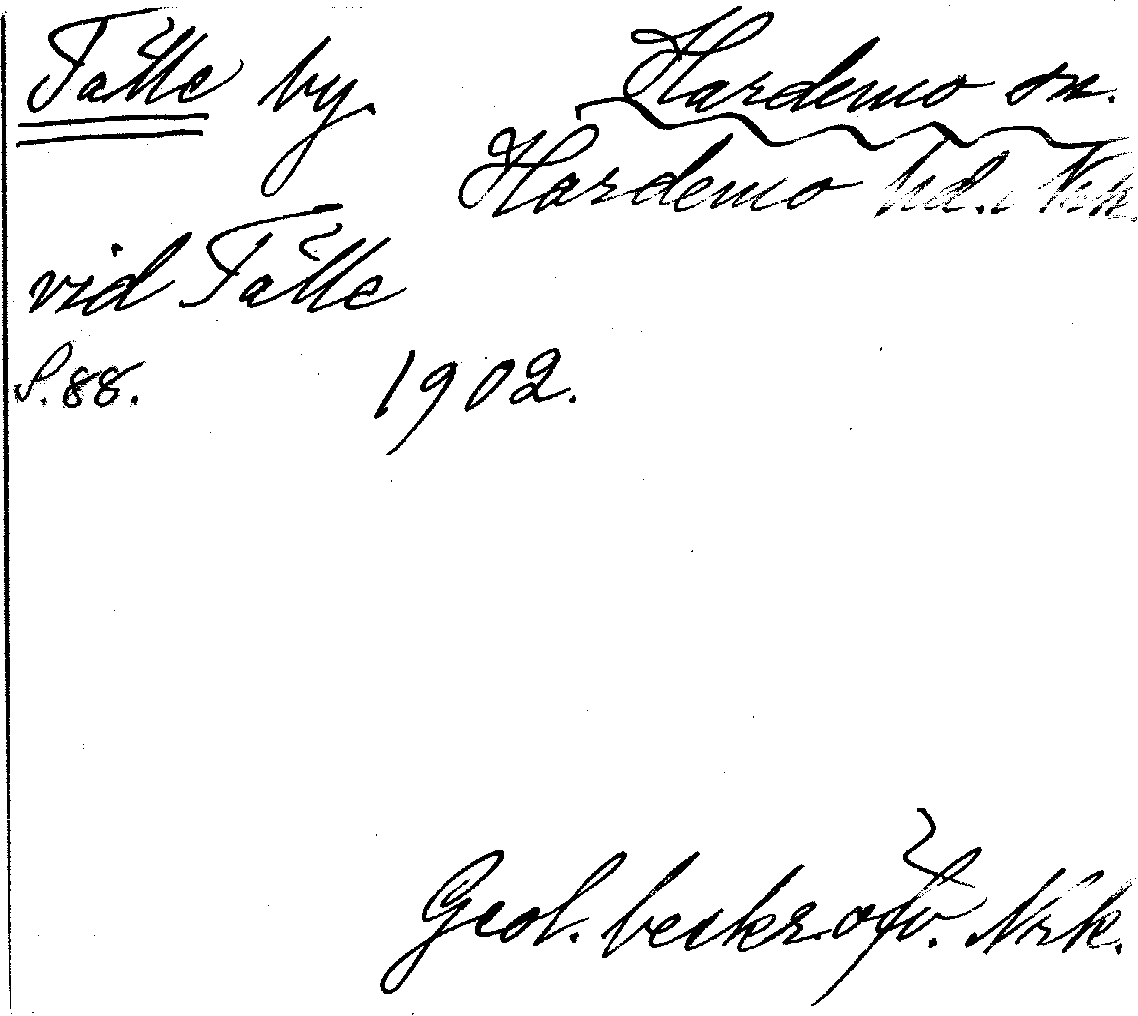 Tälle by. Hardemo sn.
Hardemo hd. i Nrk.
vid Tälle
S. 88. 1902.
Geol. beskr. öfv. Nrk.